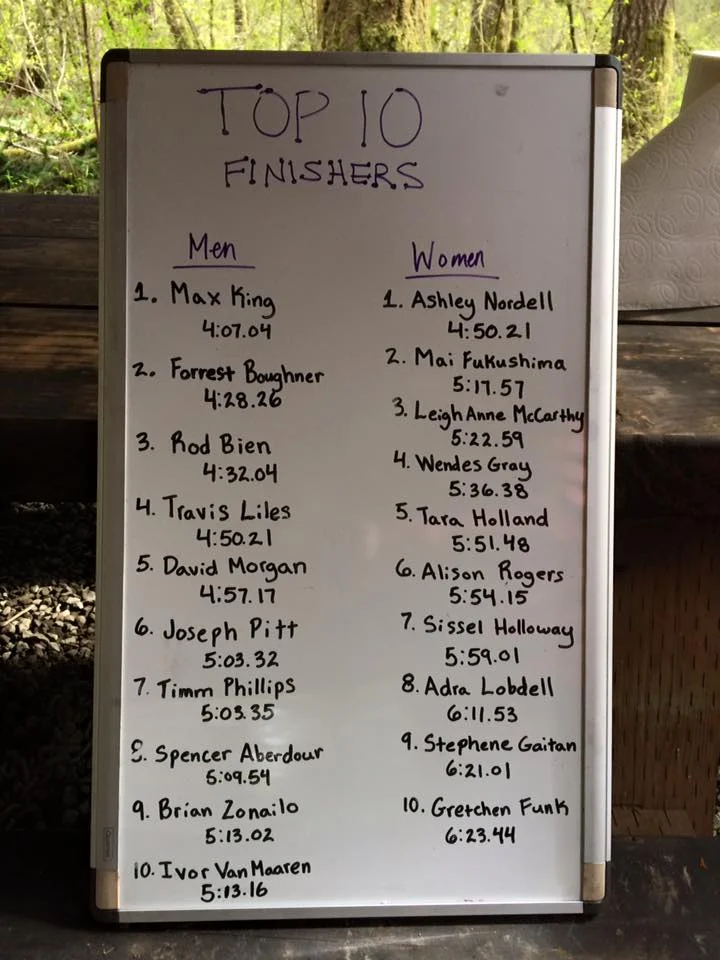 TOP 10
FINISHERS
Men
1. Max King
4:07.04
2. Forrest Boughner
4:28.26
3. Rod Bien
4:32.04
4. Travis Liles
4:50.21
5. David Morgan
4:57.17
6. Joseph Pitt
5:03.32
7. Timm Phillips
5:03.35
8. Spencer Aberdour
5:09.54
9. Brian Zonailo
5:13.02
10. Ivor VanMaaren
5:13.16
Women
1. Ashley Nordell
4:50.21
2. Mai Fukushima
5:17.57
3. LeighAnne McCarthy
5:22.59
4. Wendes Gray
5:36.38
5. Tara Holland
5:51.48
6. Alison Rogers
5:54.15
7. Sissel Holloway
5:59.01
8. Adra Lobdell
6:11.53
9. Stephene Gaitan
6:21.01
10. Gretchen Funk
6:23.44